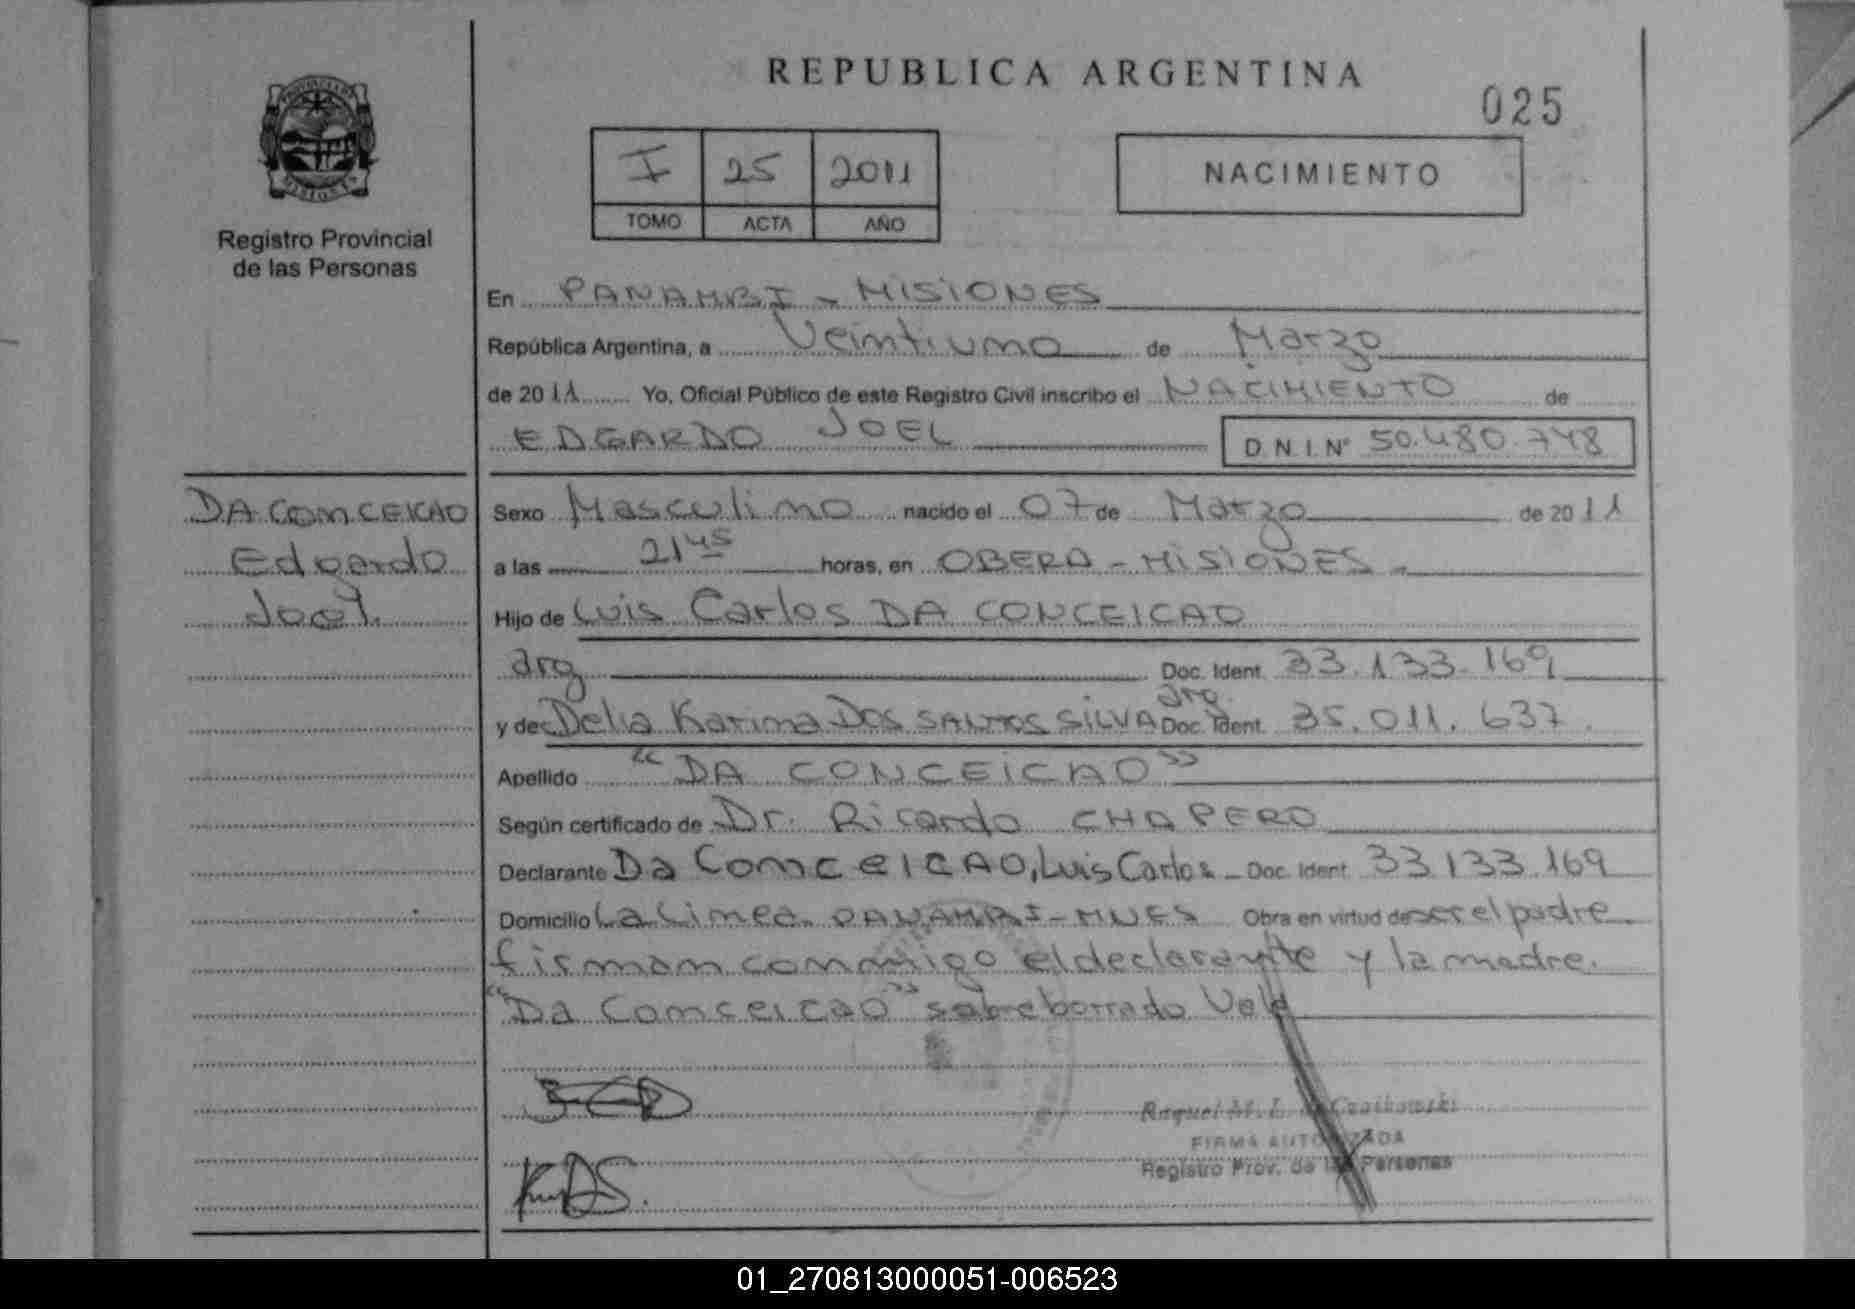 REPUBLICA ARGENTINA
025
I 25 2011
TOMO ACTA AÑO
NACIMIENTO
PROVINCIA DE
MISIONES
Registro Provincial
de las Personas
En PANAMBI - MISIONES
República Argentina, a Veintiuno de Marzo
de 2011 Yo, Oficial Público de este Registro Civil inscribo el NACIMIENTO de
EDGARDO JOEL D.N.I. Nº 50.480.748
DA CONCEICAO
Edgardo
Joel
Sexo Masculino nacido el 07 de Marzo de 2011
a las 21 45 horas, en OBERA - MISIONES -
Hijo de Luis Carlos DA CONCEICAO
arg Doc. Ident. 33.133.169
y de Delia Karina DOS SANTOS SILVA arg. Doc. Ident. 35.011.637
Apellido "DA CONCEICAO"
Según certificado de Dr. Ricardo CHAPERO
Declarante Da ConceICAO, Luis Carlos - Doc. Ident. 33.133.169
Domicilio La Linea PANAMBI - MNES Obra en virtud de ser el padre
firman conmigo el declarante y la madre.
"Da Conceicao" sobreborrado Vale
Raquel M. L.
FIRMA AUTORIZADA
Registro Prov. de las Personas
01_270813000051-006523